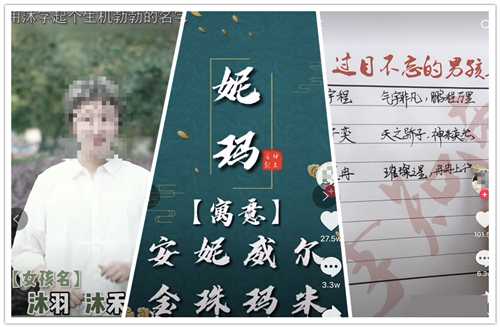 用沐字起个生机勃勃的名字
【女孩名】
沐羽 沐禾
妮
玛
【寓意】
安妮威尔
金珠玛米
27.5w
3.3w
过目不忘的男孩
宇程 气宇非凡，鹏程万里
天之骄子，神采奕奕
冉 璀璨之星，冉冉上升
101.5
6.3w